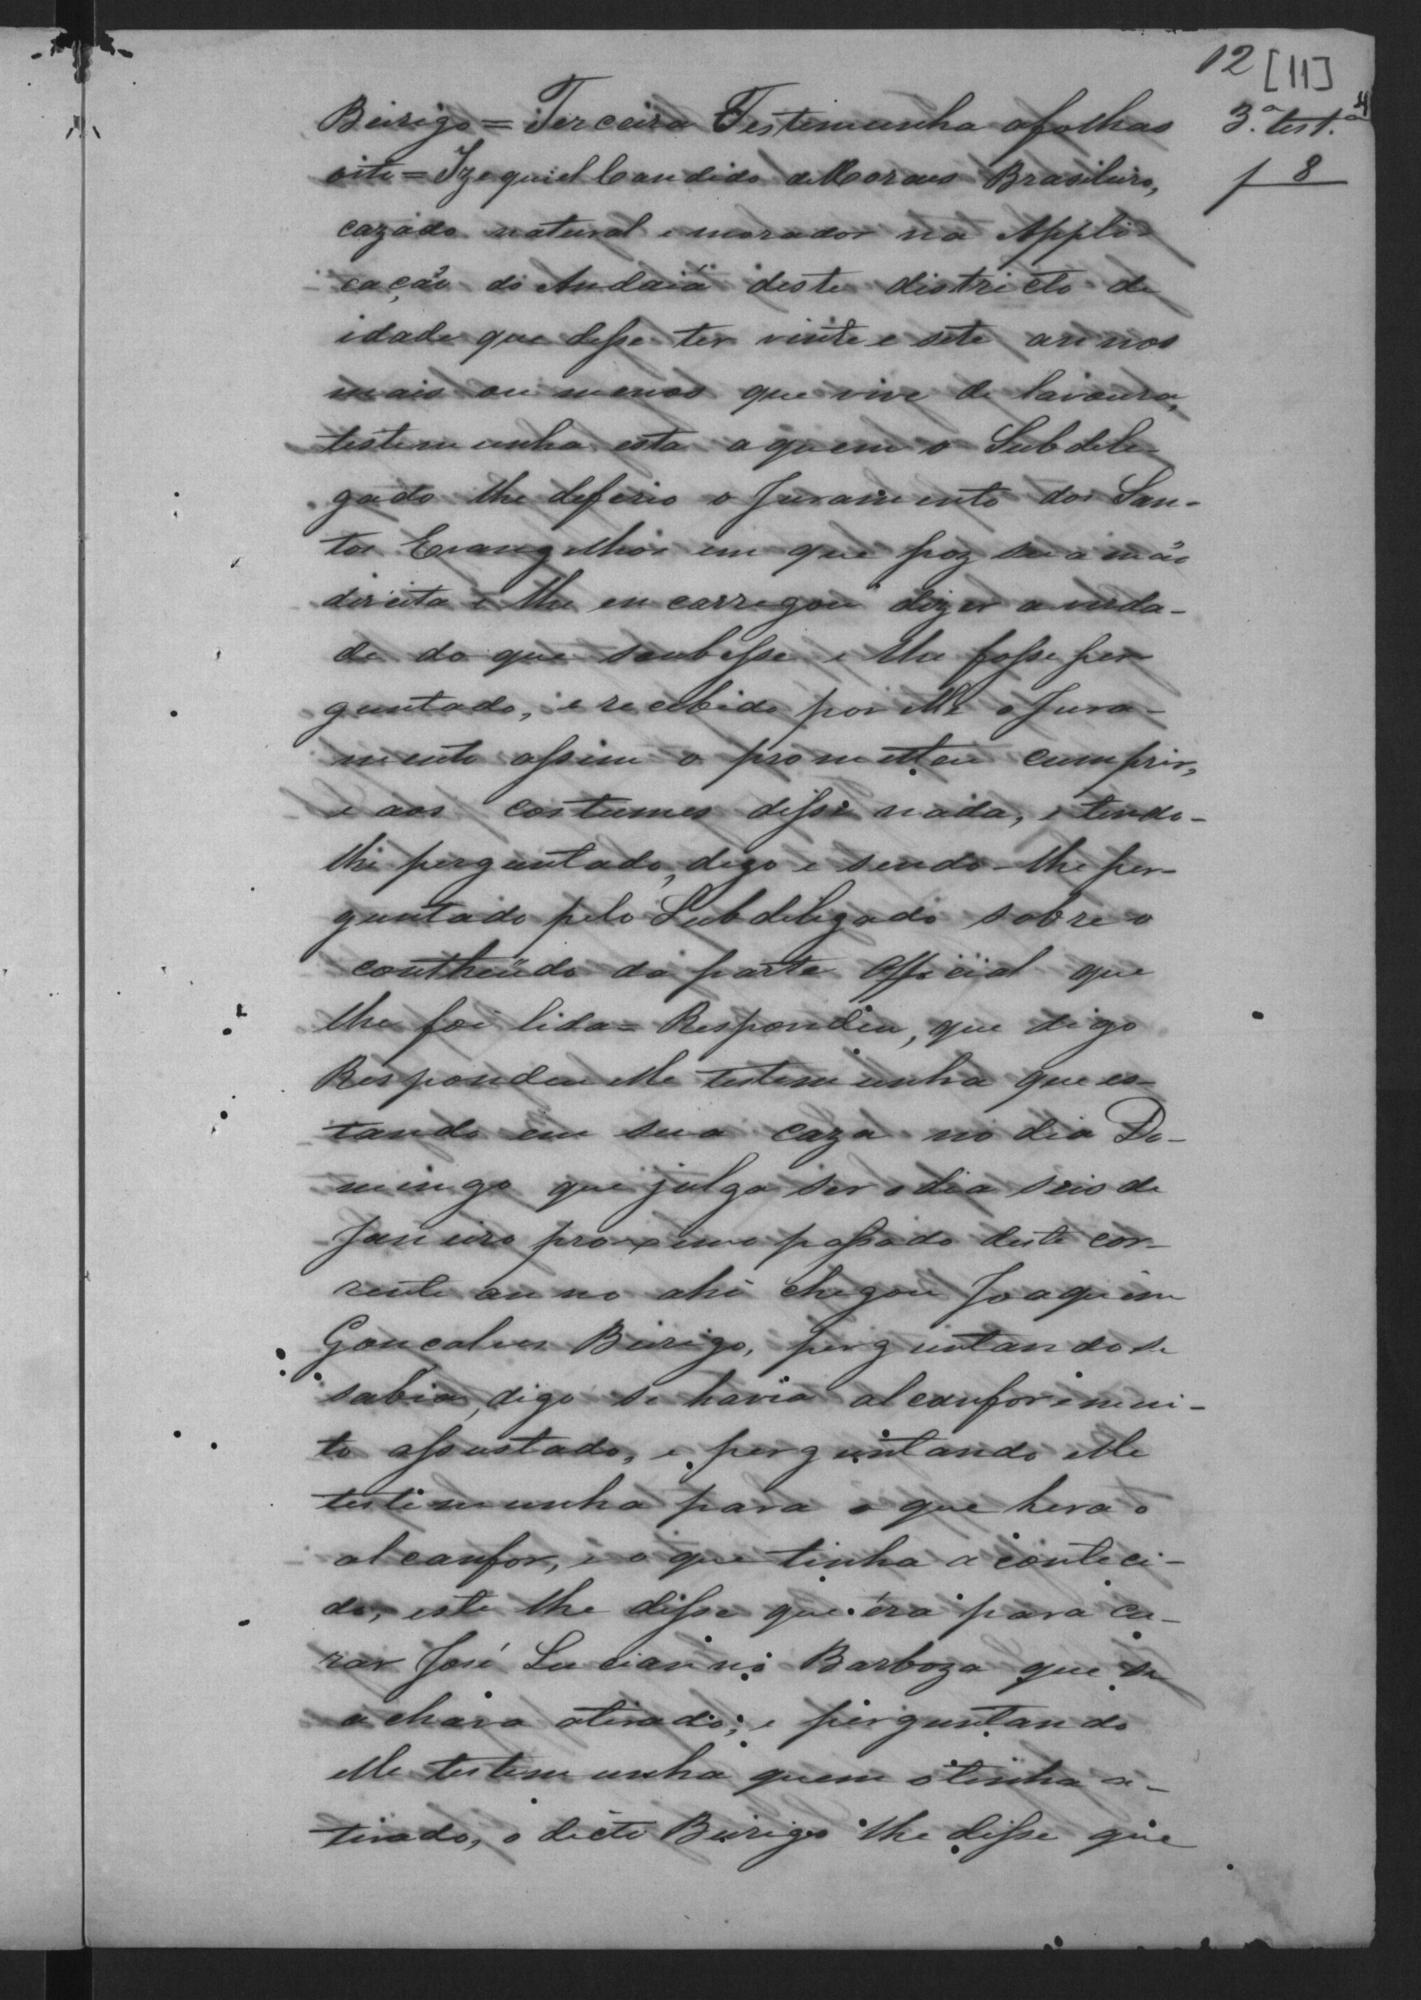 12 [11]
3.ª test.ª
f 8
Beirigo = Terceira Testemunha afolhas
oito = Izequiel Candido de Moraes Brasileiro,
cazado natural e morador na Appli-
cação do Andaiá deste districto de
idade que desse ter vinte e sete annos
mais ou menos que vive de lavoura,
testemunha esta aquem o Subdele-
gado lhe deferio o Juramento dos San-
tos Evangelhos em que poz sua mão
direita e lhe encarregou dizer a verda-
de do que soubesse e lhe fosse per
guntado, e recebido por elle o Jura-
mento assim o prometteu cumprir,
e aos costumes disse nada, e tendo-
lhe perguntado, digo e sendo-lhe per-
guntado pelo Subdelegado sobre o
contheúdo da parte official que
lhe foi lida = Respondeu, que digo
Respondeu elle testemunha que es-
tando em sua caza no dia Do-
mingo que julga ser o dia seis de
Janeiro proximo passado deste cor-
rente anno ahi chegou Joaquim
Goncalves Beirigo, perguntando se
sabia, digo se havia alcanfor e meni-
to assustado, e perguntando elle
testemunha para o que hera o
alcanfor, e o que tinha aconteci-
do, este lhe disse que éra para cu-
rar José Lucianno Barboza que se
achava atirado; e perguntando
elle testemunha quem o tinha a-
tirado, o dicto Beirigo lhe disse que